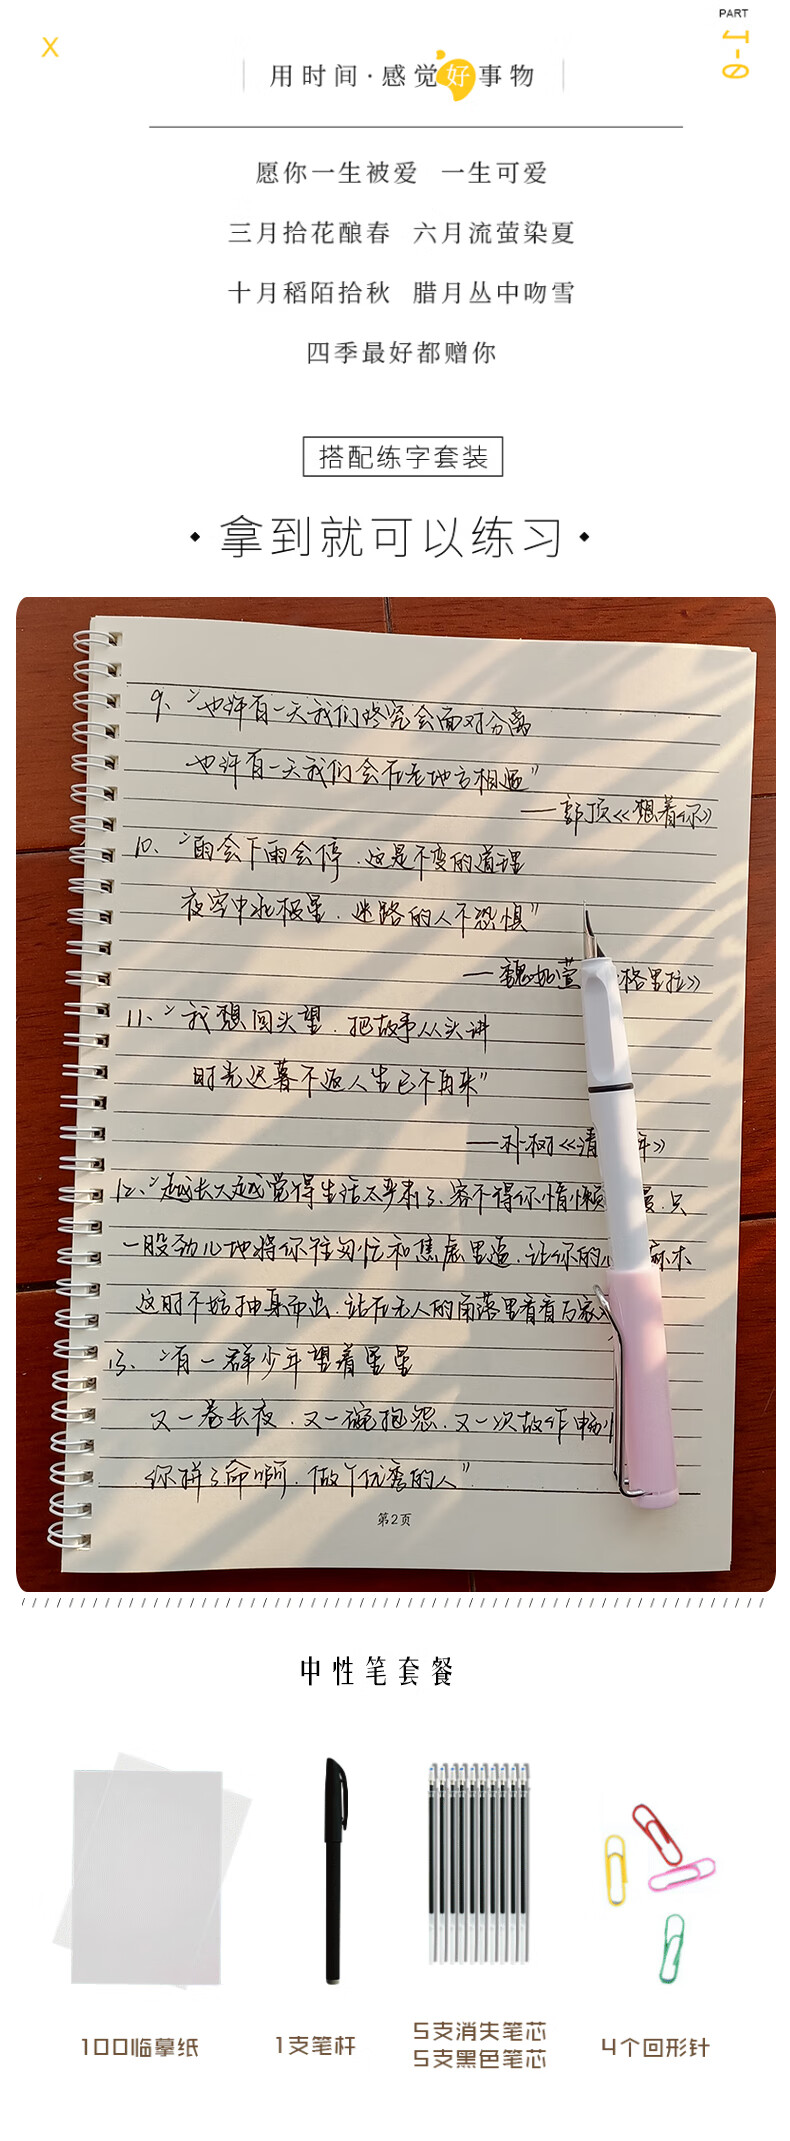 PART
J-0
X
用时间·感觉好事物
愿你一生被爱 一生可爱
三月拾花酿春 六月流萤染夏
十月稻陌拾秋 腊月丛中吻雪
四季最好都赠你
搭配练字套装
·拿到就可以练习·
9、“也许有一天我们终究会面对分离
也许有一天我们会在老地方相遇”
——郭顶《想着你》
10、“雨会下雨会停，这是不变的道理
夜空中北极星，迷路的人不恐惧”
——魏如萱 格里拉》
11、“我想回头望，把故事从头讲
时光迟暮不返人生已不再来”
——朴树《清 年》
12、“越长大越觉得生活太严肃了、容不得你惰懒 慢，只
一股劲儿地将你往匆忙和焦虑里逼，让你的 麻木
这时不妨抽身而出，站在无人的角落里看看万家
13、“有一群少年望着星星
又一卷长夜，又一碗抱怨，又一次故作
你拼了命啊，做个优秀的人”
第2页
中性笔套餐
100临摹纸
1支笔杆
5支消失笔芯
5支黑色笔芯
4个回形针